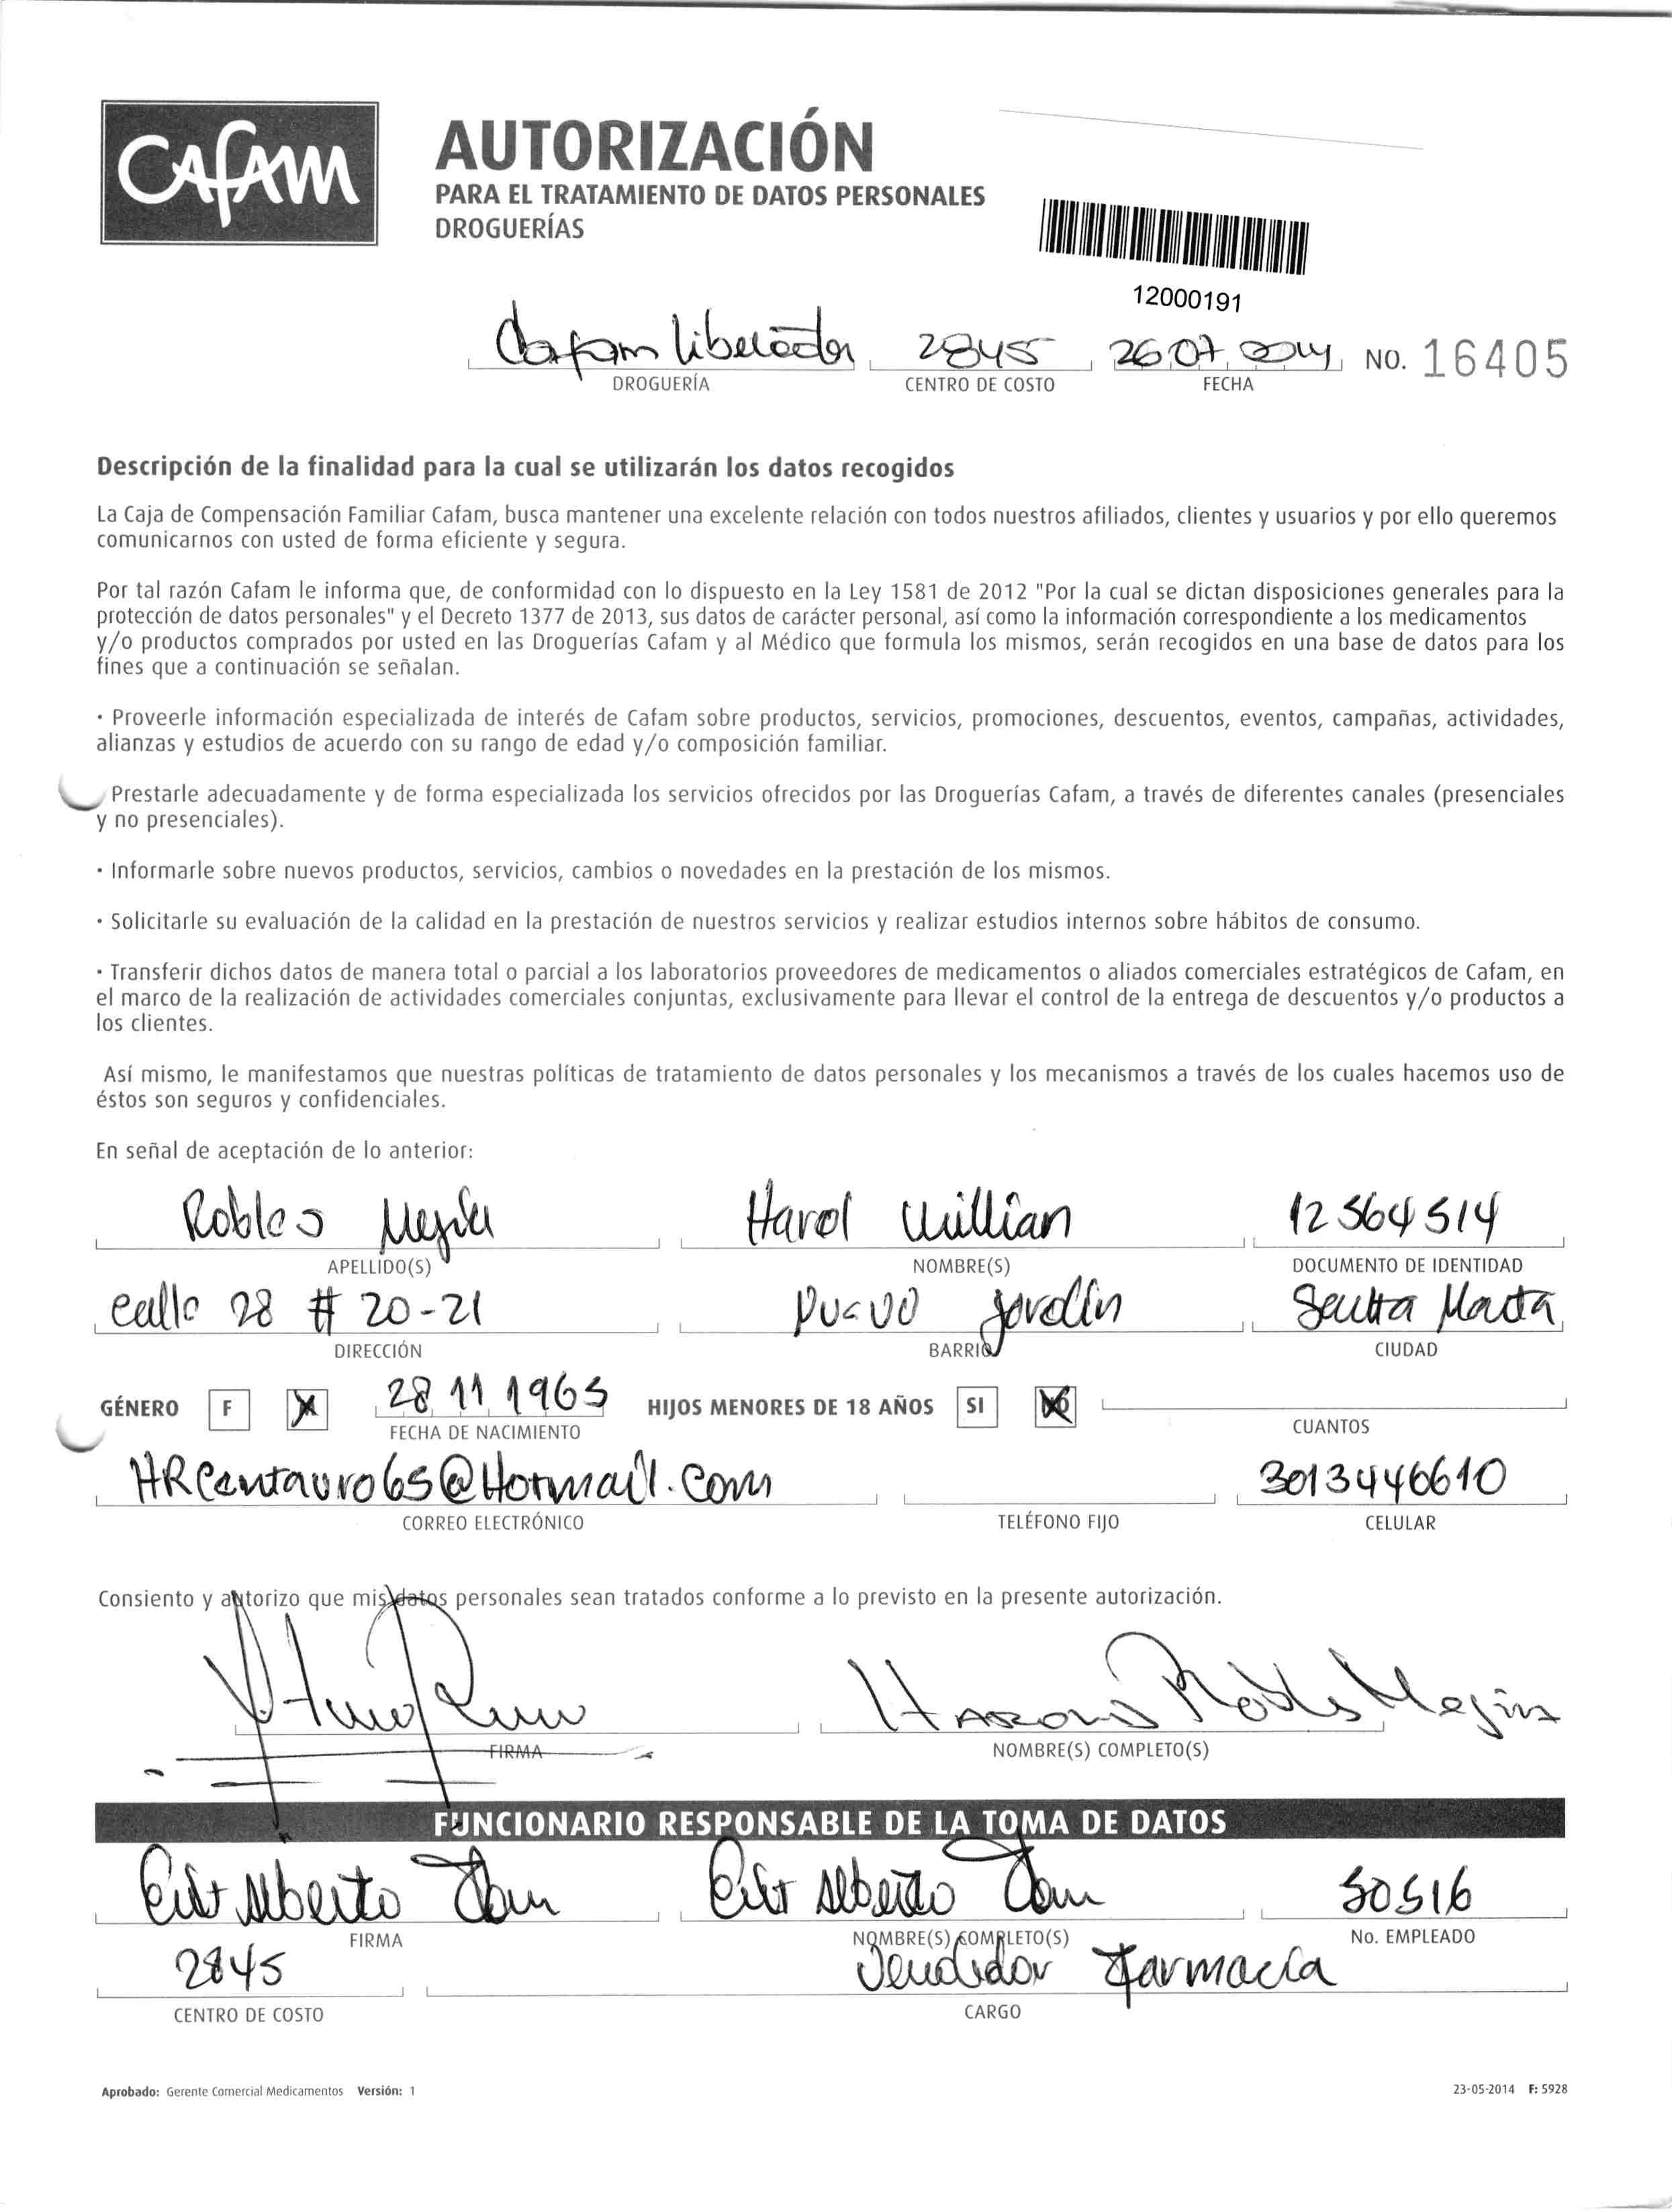 CAFAM
AUTORIZACIÓN
PARA EL TRATAMIENTO DE DATOS PERSONALES
DROGUERÍAS
12000191
Cafam liberador 2845 26 07 2014 NO. 16405
DROGUERÍA CENTRO DE COSTO FECHA
Descripción de la finalidad para la cual se utilizarán los datos recogidos
La Caja de Compensación Familiar Cafam, busca mantener una excelente relación con todos nuestros afiliados, clientes y usuarios y por ello queremos
comunicarnos con usted de forma eficiente y segura.
Por tal razón Cafam le informa que, de conformidad con lo dispuesto en la Ley 1581 de 2012 "Por la cual se dictan disposiciones generales para la
protección de datos personales" y el Decreto 1377 de 2013, sus datos de carácter personal, así como la información correspondiente a los medicamentos
y/o productos comprados por usted en las Droguerías Cafam y al Médico que formula los mismos, serán recogidos en una base de datos para los
fines que a continuación se señalan.
· Proveerle información especializada de interés de Cafam sobre productos, servicios, promociones, descuentos, eventos, campañas, actividades,
alianzas y estudios de acuerdo con su rango de edad y/o composición familiar.
Prestarle adecuadamente y de forma especializada los servicios ofrecidos por las Droguerías Cafam, a través de diferentes canales (presenciales
y no presenciales).
· Informarle sobre nuevos productos, servicios, cambios o novedades en la prestación de los mismos.
· Solicitarle su evaluación de la calidad en la prestación de nuestros servicios y realizar estudios internos sobre hábitos de consumo.
· Transferir dichos datos de manera total o parcial a los laboratorios proveedores de medicamentos o aliados comerciales estratégicos de Cafam, en
el marco de la realización de actividades comerciales conjuntas, exclusivamente para llevar el control de la entrega de descuentos y/o productos a
los clientes.
Así mismo, le manifestamos que nuestras políticas de tratamiento de datos personales y los mecanismos a través de los cuales hacemos uso de
éstos son seguros y confidenciales.
En señal de aceptación de lo anterior:
Robles Mejia Harol Willian 12564514
APELLIDO(S) NOMBRE(S) DOCUMENTO DE IDENTIDAD
calle 28 # 20-21 Nuevo jardin Santa Marta
DIRECCIÓN BARRIO CIUDAD
GÉNERO F 28 11 1965 HIJOS MENORES DE 18 AÑOS SI NO
FECHA DE NACIMIENTO CUANTOS
HRCentauro65@Hotmail.com 3013446610
CORREO ELECTRÓNICO TELÉFONO FIJO CELULAR
Consiento y autorizo que mis datos personales sean tratados conforme a lo previsto en la presente autorización.
Robles Mejia
FIRMA NOMBRE(S) COMPLETO(S)
FUNCIONARIO RESPONSABLE DE LA TOMA DE DATOS
Alberto Alberto 50516
FIRMA NOMBRE(S) COMPLETO(S) No. EMPLEADO
2845 Vendedor Farmacia
CENTRO DE COSTO CARGO
Aprobado: Gerente Comercial Medicamentos Versión: 1 23-05-2014 F: 5928